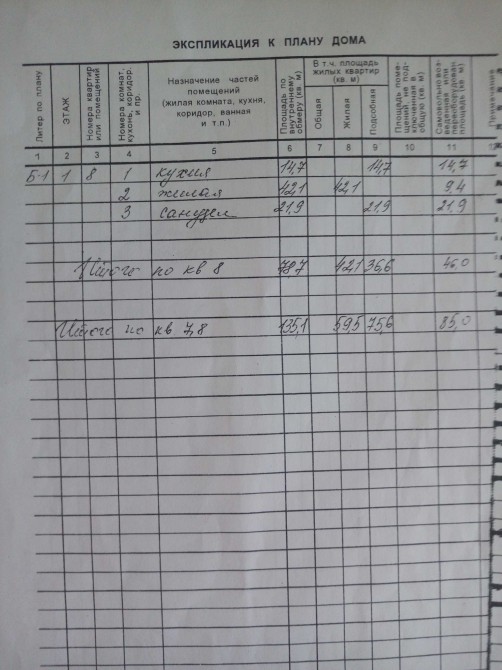 ЭКСПЛИКАЦИЯ К ПЛАНУ ДОМА
Литер по плану
ЭТАЖ
Номера квартир или помещений
Номера комнат, кухонь, коридор. и пр.
Назначение частей помещений (жилая комната, кухня, коридор, ванная и т.п.)
Площадь по внутреннему обмеру (кв. м)
В т.ч. площадь жилых квартир (кв. м)
Общая
Жилая
Подсобная
Площадь помещений, не подключенная в общую (кв. м)
Самовольно возведенная или переоборудован. площадь (кв. м)
Примечание
1 2 3 4 5 6 7 8 9 10 11 12
Б-1 1 8 1 кухня 14,7 14,7 14,7
2 жилая 42,1 42,1 9.4
3 санузел 21,9 21,9 21,9
Итого по кв 8 78,7 42,1 36,6 46,0
Итого по кв 7,8 135,1 59,5 75,6 85,0